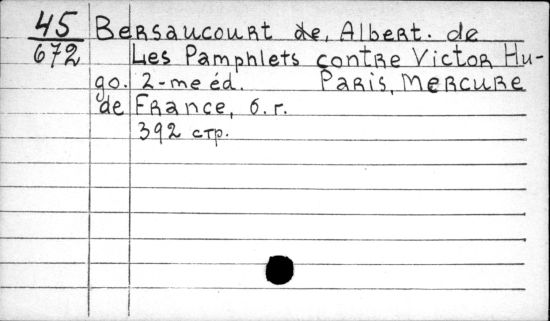 45 Bersaucourt de, Albert. de
672 Les Pamphlets contre Victor Hu-
go. 2-me éd. Paris, Mercure
de France, б.г.
392 стр.